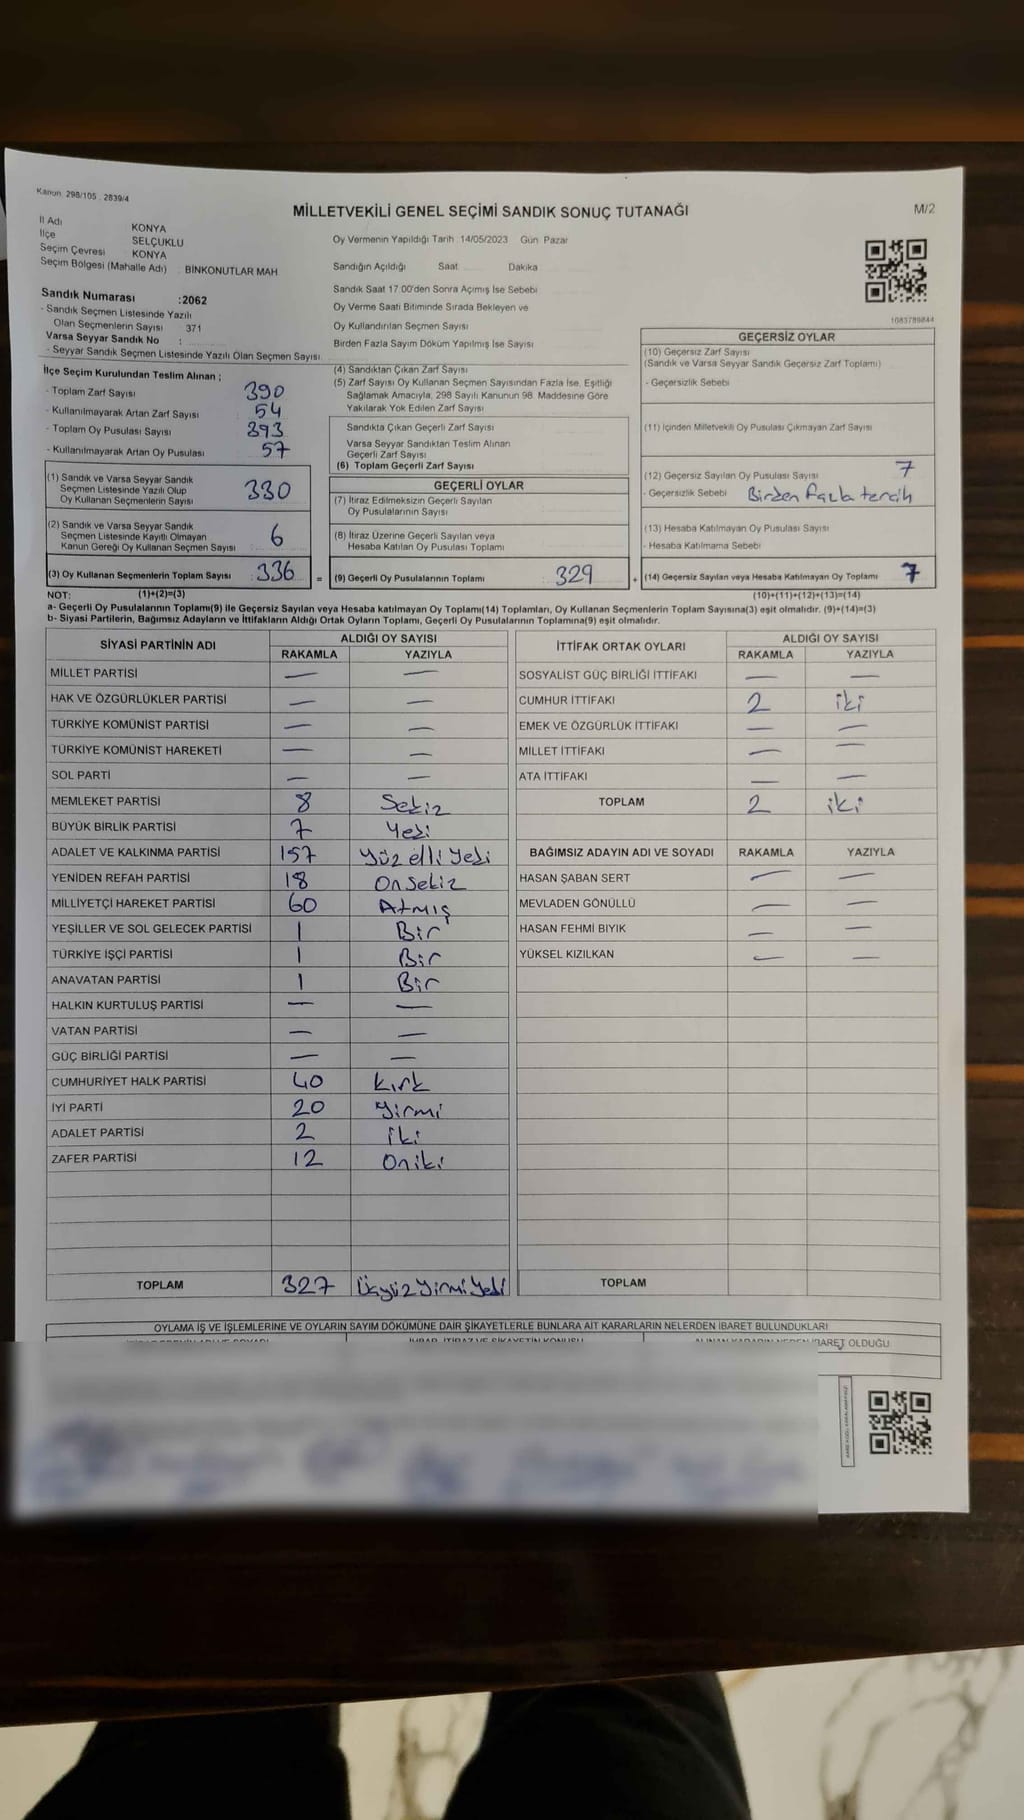 Kanun: 298/105 - 2839/4
MİLLETVEKİLİ GENEL SEÇİMİ SANDIK SONUÇ TUTANAĞI
M/2
İl Adı KONYA
İlçe SELÇUKLU
Seçim Çevresi KONYA
Seçim Bölgesi (Mahalle Adı) : BİNKONUTLAR MAH
Sandık Numarası :2062
- Sandık Seçmen Listesinde Yazılı
Olan Seçmenlerin Sayısı : 371
Varsa Seyyar Sandık No :
- Seyyar Sandık Seçmen Listesinde Yazılı Olan Seçmen Sayısı
Oy Vermenin Yapıldığı Tarih : 14/05/2023 Gün: Pazar
Sandığın Açıldığı Saat Dakika
Sandık Saat 17.00'den Sonra Açımış İse Sebebi
Oy Verme Saati Bitiminde Sırada Bekleyen ve
Oy Kullandırılan Seçmen Sayısı
Birden Fazla Sayım Döküm Yapılmış İse Sayısı
1083789844
İlçe Seçim Kurulundan Teslim Alınan ;
- Toplam Zarf Sayısı 390
- Kullanılmayarak Artan Zarf Sayısı 54
- Toplam Oy Pusulası Sayısı 393
- Kullanılmayarak Artan Oy Pusulası 57
(1) Sandık ve Varsa Seyyar Sandık
Seçmen Listesinde Yazılı Olup
Oy Kullanan Seçmenlerin Sayısı 330
(2) Sandık ve Varsa Seyyar Sandık
Seçmen Listesinde Kayıtlı Olmayan
Kanun Gereği Oy Kullanan Seçmen Sayısı 6
(3) Oy Kullanan Seçmenlerin Toplam Sayısı : 336 =
(4) Sandıktan Çıkan Zarf Sayısı
(5) Zarf Sayısı Oy Kullanan Seçmen Sayısından Fazla İse, Eşitliği
Sağlamak Amacıyla, 298 Sayılı Kanunun 98. Maddesine Göre
Yakılarak Yok Edilen Zarf Sayısı
Sandıkta Çıkan Geçerli Zarf Sayısı
Varsa Seyyar Sandıktan Teslim Alınan
Geçerli Zarf Sayısı
(6) Toplam Geçerli Zarf Sayısı
GEÇERLİ OYLAR
(7) İtiraz Edilmeksizin Geçerli Sayılan
Oy Pusulalarının Sayısı
(8) İtiraz Üzerine Geçerli Sayılan veya
Hesaba Katılan Oy Pusulası Toplamı
(9) Geçerli Oy Pusulalarının Toplamı : 329 +
GEÇERSİZ OYLAR
(10) Geçersiz Zarf Sayısı
(Sandık ve Varsa Seyyar Sandık Geçersiz Zarf Toplamı)
- Geçersizlik Sebebi
(11) İçinden Milletvekili Oy Pusulası Çıkmayan Zarf Sayısı
(12) Geçersiz Sayılan Oy Pusulası Sayısı 7
- Geçersizlik Sebebi Birden fazla tercih
(13) Hesaba Katılmayan Oy Pusulası Sayısı
- Hesaba Katılmama Sebebi
(14) Geçersiz Sayılan veya Hesaba Katılmayan Oy Toplamı 7
NOT: (1)+(2)=(3) (10)+(11)+(12)+(13)=(14)
a- Geçerli Oy Pusulalarının Toplamı(9) ile Geçersiz Sayılan veya Hesaba katılmayan Oy Toplamı(14) Toplamları, Oy Kullanan Seçmenlerin Toplam Sayısına(3) eşit olmalıdır. (9)+(14)=(3)
b- Siyasi Partilerin, Bağımsız Adayların ve İttifakların Aldığı Ortak Oyların Toplamı, Geçerli Oy Pusulalarının Toplamına(9) eşit olmalıdır.
SİYASİ PARTİNİN ADI ALDIĞI OY SAYISI
RAKAMLA YAZIYLA
MİLLET PARTİSİ — —
HAK VE ÖZGÜRLÜKLER PARTİSİ — —
TÜRKİYE KOMÜNİST PARTİSİ — —
TÜRKİYE KOMÜNİST HAREKETİ — —
SOL PARTİ — —
MEMLEKET PARTİSİ 8 Sekiz
BÜYÜK BİRLİK PARTİSİ 7 Yedi
ADALET VE KALKINMA PARTİSİ 157 Yüz elli Yedi
YENİDEN REFAH PARTİSİ 18 Onsekiz
MİLLİYETÇİ HAREKET PARTİSİ 60 Atmış
YEŞİLLER VE SOL GELECEK PARTİSİ 1 Bir
TÜRKİYE İŞÇİ PARTİSİ 1 Bir
ANAVATAN PARTİSİ 1 Bir
HALKIN KURTULUŞ PARTİSİ — —
VATAN PARTİSİ — —
GÜÇ BİRLİĞİ PARTİSİ — —
CUMHURİYET HALK PARTİSİ 40 Kırk
İYİ PARTİ 20 Yirmi
ADALET PARTİSİ 2 İki
ZAFER PARTİSİ 12 Oniki
TOPLAM 327 Üçyüz Yirmi Yedi
İTTİFAK ORTAK OYLARI ALDIĞI OY SAYISI
RAKAMLA YAZIYLA
SOSYALİST GÜÇ BİRLİĞİ İTTİFAKI — —
CUMHUR İTTİFAKI 2 iki
EMEK VE ÖZGÜRLÜK İTTİFAKI — —
MİLLET İTTİFAKI — —
ATA İTTİFAKI — —
TOPLAM 2 iki
BAĞIMSIZ ADAYIN ADI VE SOYADI RAKAMLA YAZIYLA
HASAN ŞABAN SERT — —
MEVLADEN GÖNÜLLÜ — —
HASAN FEHMİ BIYIK — —
YÜKSEL KIZILKAN — —
TOPLAM
OYLAMA İŞ VE İŞLEMLERİNE VE OYLARIN SAYIM DÖKÜMÜNE DAİR ŞİKAYETLERLE BUNLARA AİT KARARLARIN NELERDEN İBARET BULUNDUKLARI
OLDUĞU